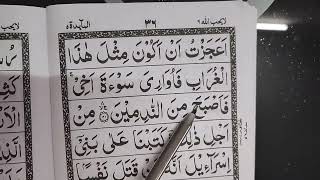 لا يحب الله ٦
٣٦
المآئدة ٥
اَعَجَزْتُ اَنْ اَكُوْنَ مِثْلَ هٰذَا
الْغُرَابِ فَاُوَارِىَ سَوْءَةَ اَخِىْ ۚ
فَاَصْبَحَ مِنَ النّٰدِمِيْنَ مِنْ
اَجْلِ ذٰلِكَ كَتَبْنَا عَلٰى بَنِىْٓ
اِسْرَآءِيْلَ اَنَّهٗ مَنْ قَتَلَ نَفْسًا